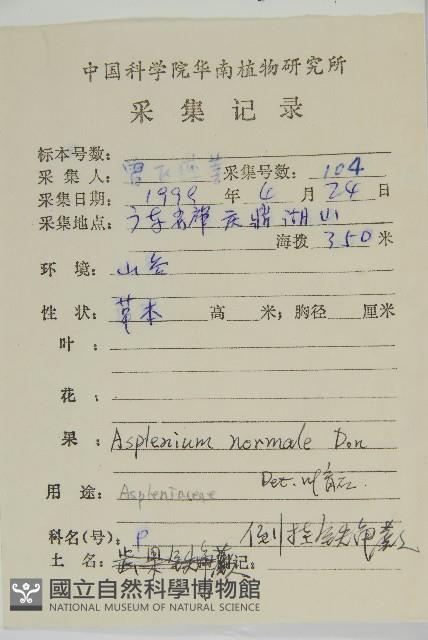 中国科学院华南植物研究所
采集记录
标本号数：
采集人：曾飞燕等 采集号数：104
采集日期：1999年6月24日
采集地点：广东省肇庆鼎湖山
海拨 350 米
环境：山谷
性状：草本 高 米；胸径 厘米
叶：
花：
果：Asplenium normale Don
Det.
用途：Aspleniaceae
科名(号)：P 倒挂铁角蕨
土名：记：
國立自然科學博物館
NATIONAL MUSEUM OF NATURAL SCIENCE